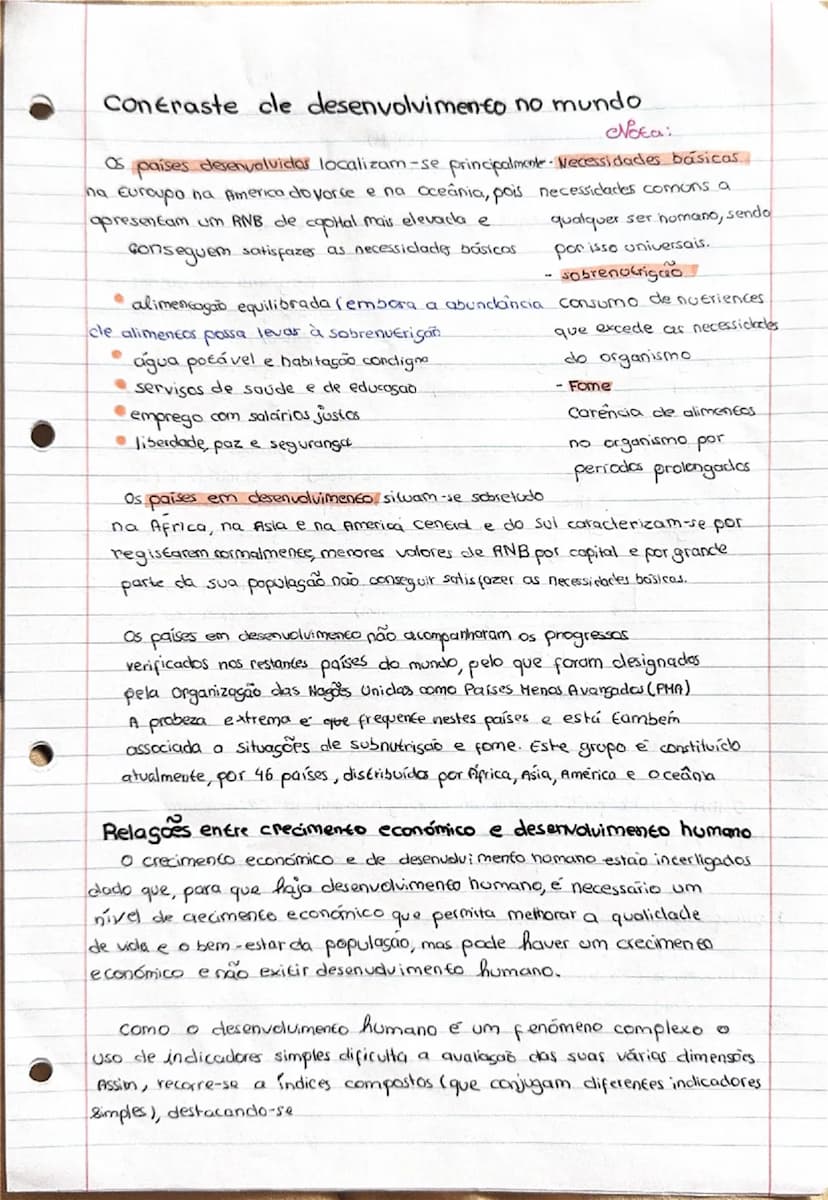 Contraste de desenvolvimento no mundo
Nota:
Os países desenvolvidos localizam-se principalmente
na Euroupo na America do Norte e na Oceânia, pois
apresentam um RNB de capital mais elevado e
conseguem satisfazer as necessidades básicos
• alimentação equilibrada (embora a abundância
de alimentos possa levar à sobrenutrição
• água potável e habitação condigna
• serviços de saúde e de educação
• emprego com salários justos
• liberdade, paz e segurança
- Necessidades básicas
necessidades comuns a
qualquer ser humano, sendo
por isso universais.
- sobrenutrição
consumo de nutrientes
que excede as necessidades
do organismo
- Fome
Carência de alimentos
no organismo por
períodos prolongados
Os países em desenvolvimento situam-se sobretudo
na África, na Asia e na America Central e do Sul caracterizam-se por
registarem normalmente, menores valores de RNB por capital e por grande
parte da sua população não conseguir satisfazer as necessidades básicas.
Os países em desenvolvimento não acompanharam os progressos
verificados nos restantes países do mundo, pelo que foram designados
pela Organização das Nações Unidas como Países Menos Avançados (PMA)
A probeza extrema é que frequente nestes países e está também
associada a situações de subnutrição e fome. Este grupo é constituído
atualmente, por 46 países, distribuídos por África, Ásia, América e Oceânia
Relações entre crecimento económico e desenvolvimento humano
O crecimento económico e de desenvolvimento homano estão incerligados
dado que, para que haja desenvolvimento humano, é necessário um
nível de crecimento económico que permita melhorar a qualidade
de vida e o bem-estar da população, mas pode haver um crecimento
económico e não exitir desenvolvimento humano.
Como o desenvolvimento humano é um fenómeno complexo o
uso de indicadores simples dificulta a avaliação das suas várias dimensões
Assim, recorre-se a índices compostos (que conjugam diferentes indicadores
simples), destacando-se